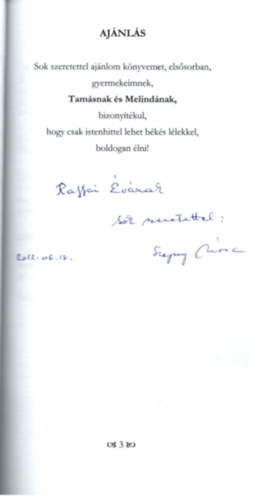 AJÁNLÁS
Sok szeretettel ajánlom könyvemet, elsősorban,
gyermekeimnek,
Tamásnak és Melindának,
bizonyítékul,
hogy csak istenhittel lehet békés lélekkel,
boldogan élni!
Raffai Évának
sok szeretettel:
2012.06.17.
3